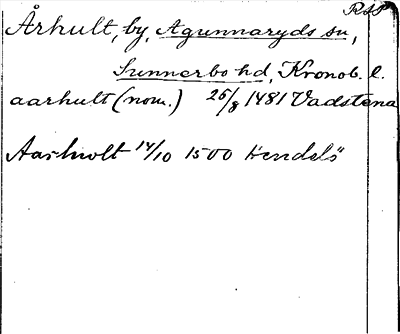 RSP
Århult, by, Agunnaryds sn,
Sunnerbo hd, Kronob. l.
aarhult (nom.) 25/8 1481 Vadstena
Aarhwlt 14/10 1500